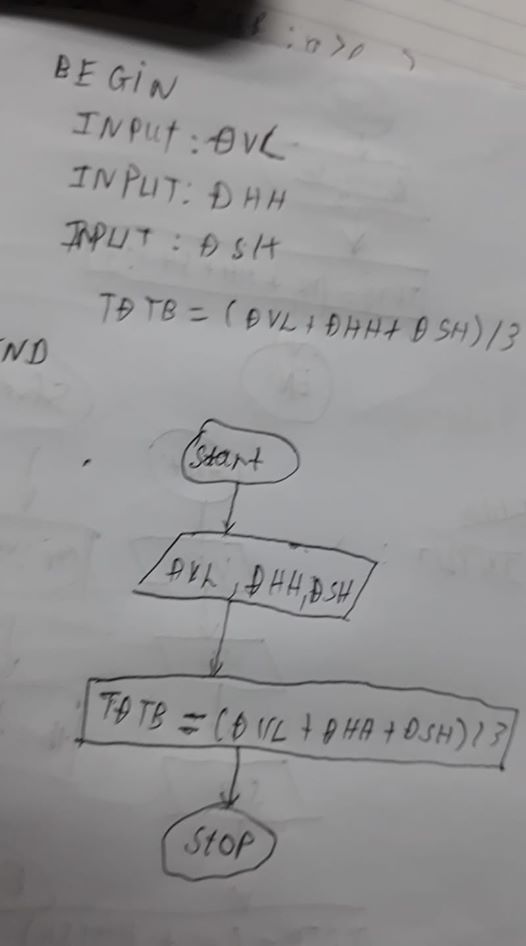 BEGIN
INPUT: ĐVL
INPUT: ĐHH
INPUT: ĐSH
TĐTB = (ĐVL + ĐHH + ĐSH) / 3
END
Start
ĐVL, ĐHH, ĐSH
TĐTB = (ĐVL + ĐHH + ĐSH) / 3
STOP